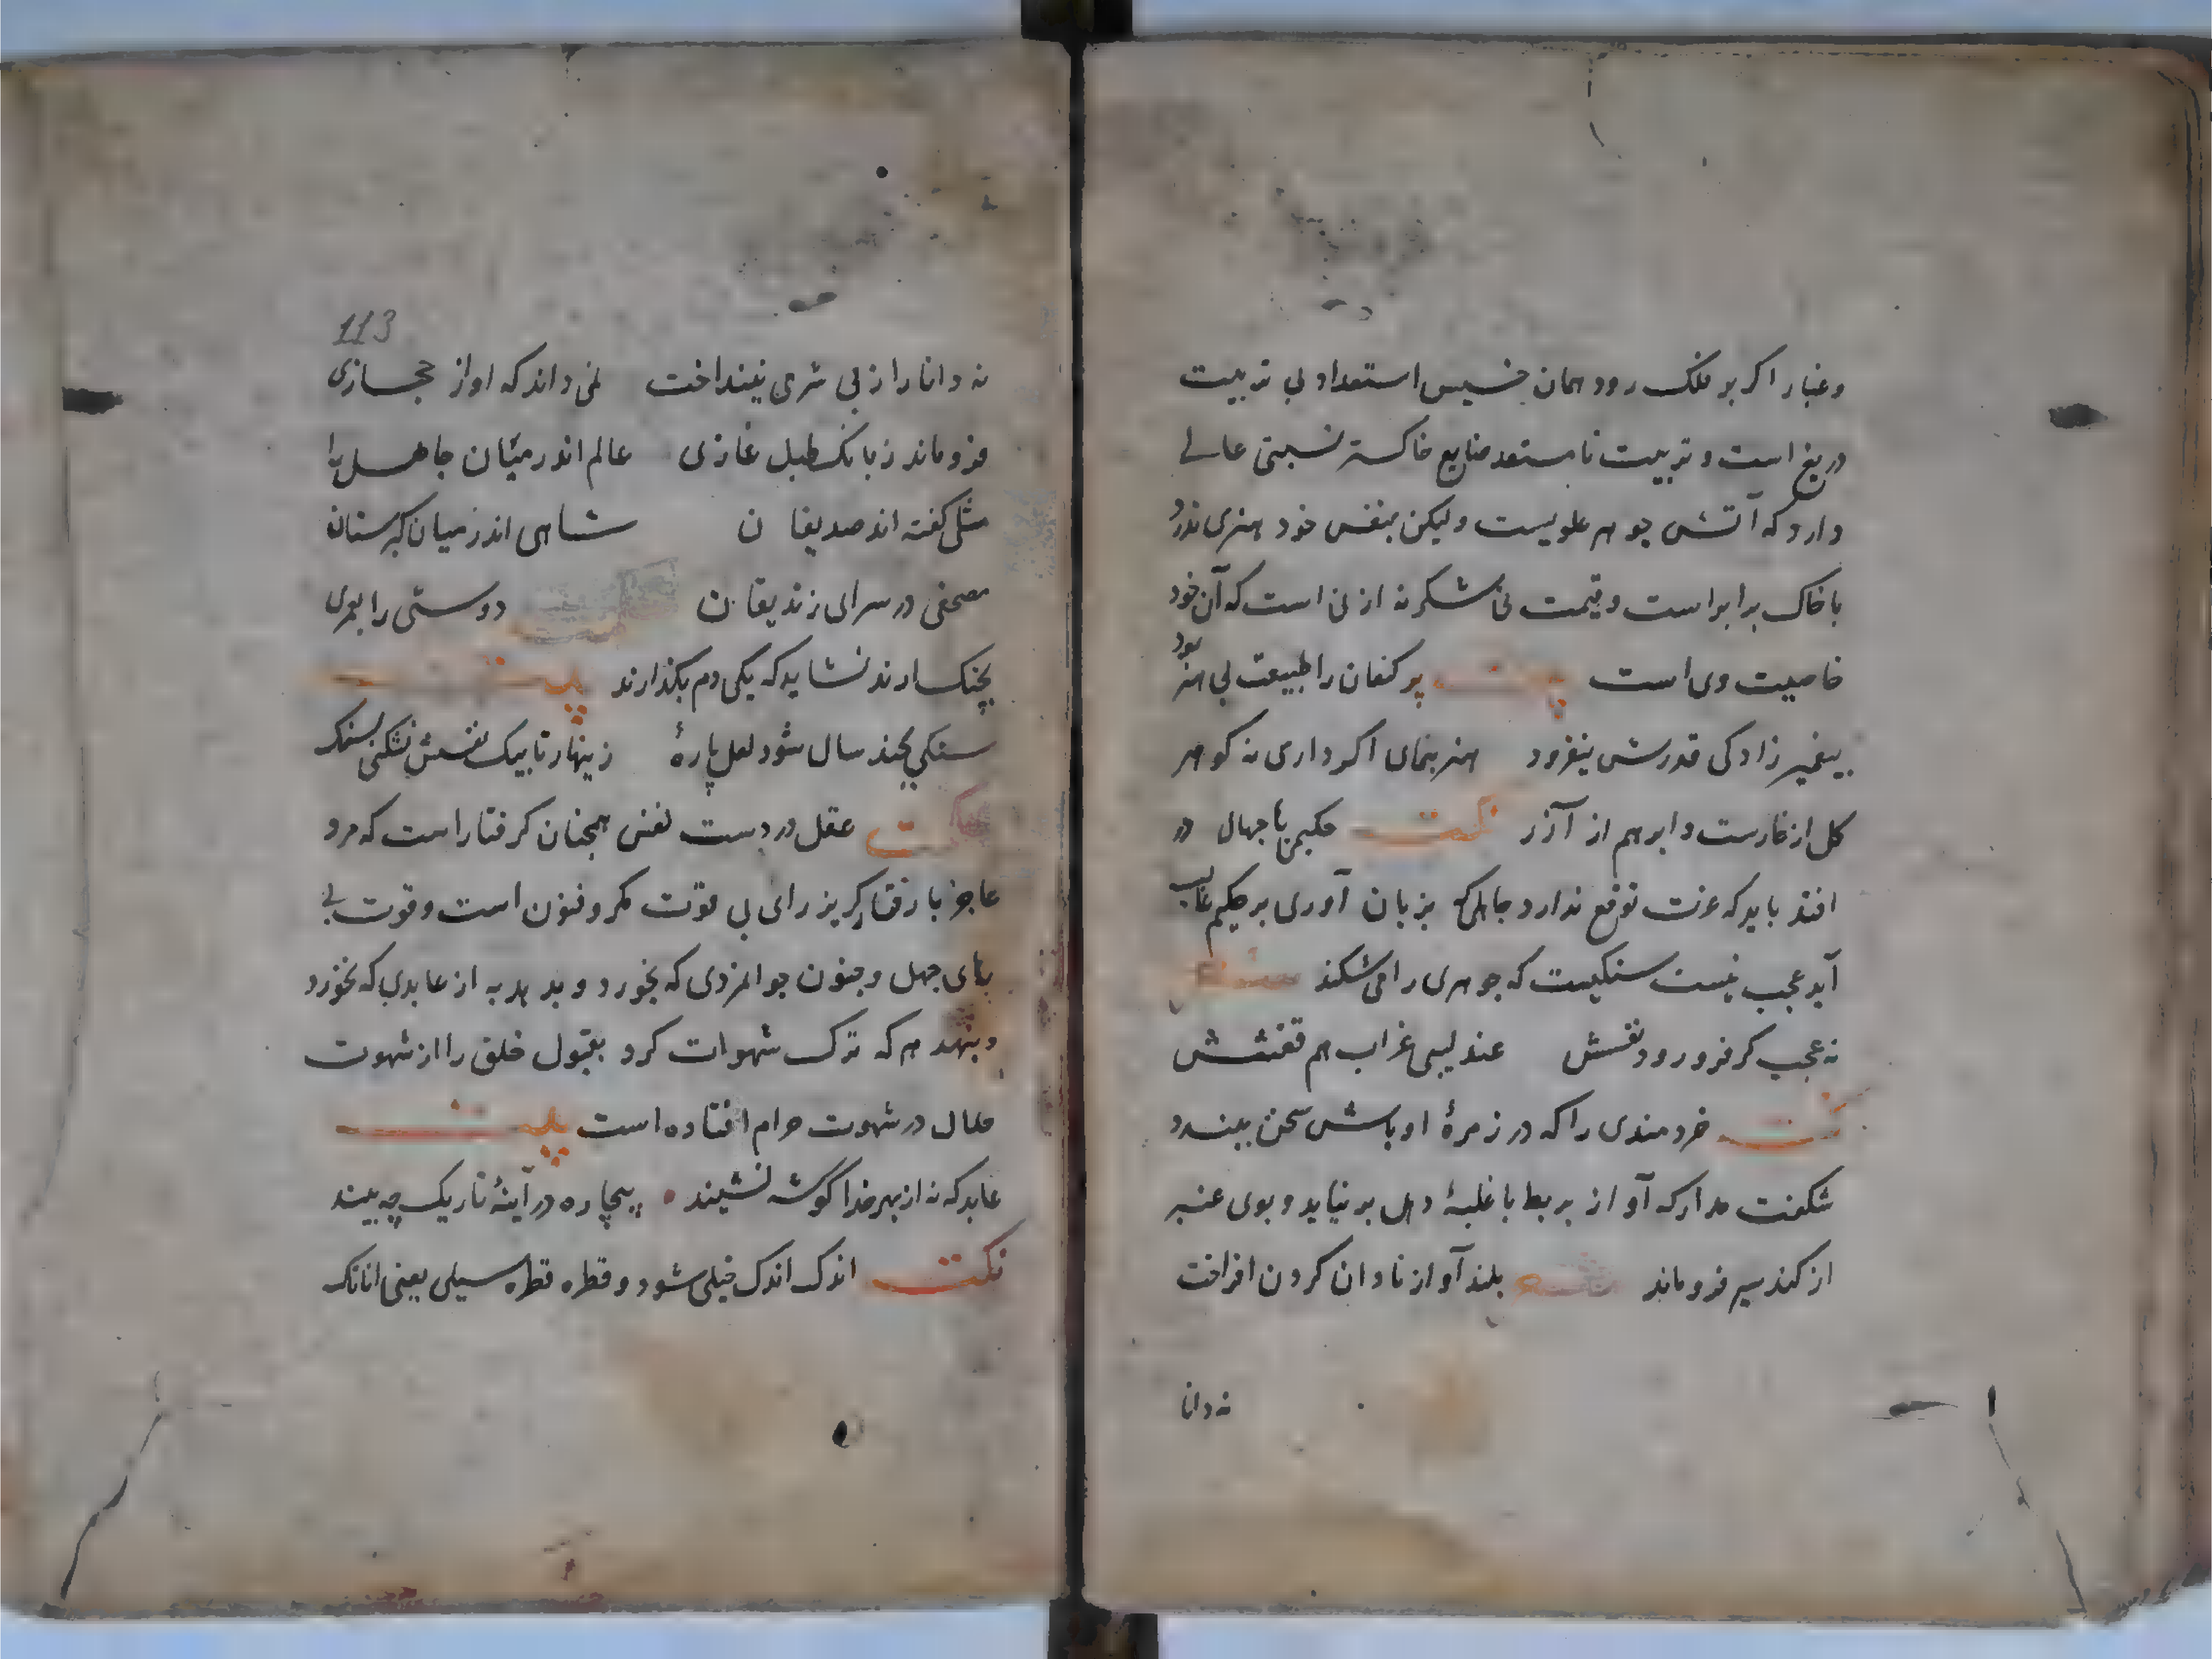 وغبار اگر بر فلک رود همان خسیس استعداد بی تربیت
دریغ است و تربیت نامستعد ضایع خاکستر نسبتی عالی
دارد که آتش جوهر علویست ولیکن بنفس خود هنری ندارد
با خاک برابر است و قیمت نی شکر نه از نی است که آن خود
خاصیت وی است چو کنعان را طبیعت بی هنر بود
پیغمبر زادگی قدرش نیفزود هنر بنمای اگر داری نه گوهر
گل از خارست و ابرهم از آزر نکته حکیمی با جهال در
افتد باید که عزت توقع ندارد جاهلی که بزبان آوری بر حکیم غالب
آید عجب نیست سنگیست که جوهری را می شکند
نه عجب گر فرو رود نفسش عندلیبی غراب هم قفسش
خردمندی را که در زمره اوباش سخن ببندد
شگفت مدار که آواز بربط با غلبه دهل بر نیاید و بوی عنبر
از گند سیر فرو ماند بلند آواز نادان گردن افراخت
نه دانا
113
نه دانا را از بی شرمی بینداخت نمی داند که اواز حجازی
فرو ماند ز بانگ طبل غازی عالم اندر میان جاهل را
مثلی گفته اند صدیقان شاهی اندر میان
مصحفی در سرای زندیقان دوستی را بعمری
بچنگ ارند نشاید که بیکدم بگذارند
سنگی بچند سال شود لعل پاره زینهار تا بیک نفسش نشکنی بسنگ
عقل در دست نفس همچنان گرفتار است که مرد
عاجز با رفتار گریز رای بی قوت مکر و فنون است و قوت بی
رای جهل و جنون جوانمردی که بخورد و بدهد به از عابدی که نخورد
و بنهد هر که ترک شهوات کرد بقبول خلق را از شهوت
حلال در شهوت حرام افتاده است
عابد که نه از بهر خدا گوشه نشیند بیچاره در آینه تاریک چه بیند
نکته اندک اندک خیلی شود و قطره قطره سیلی یعنی انانکه